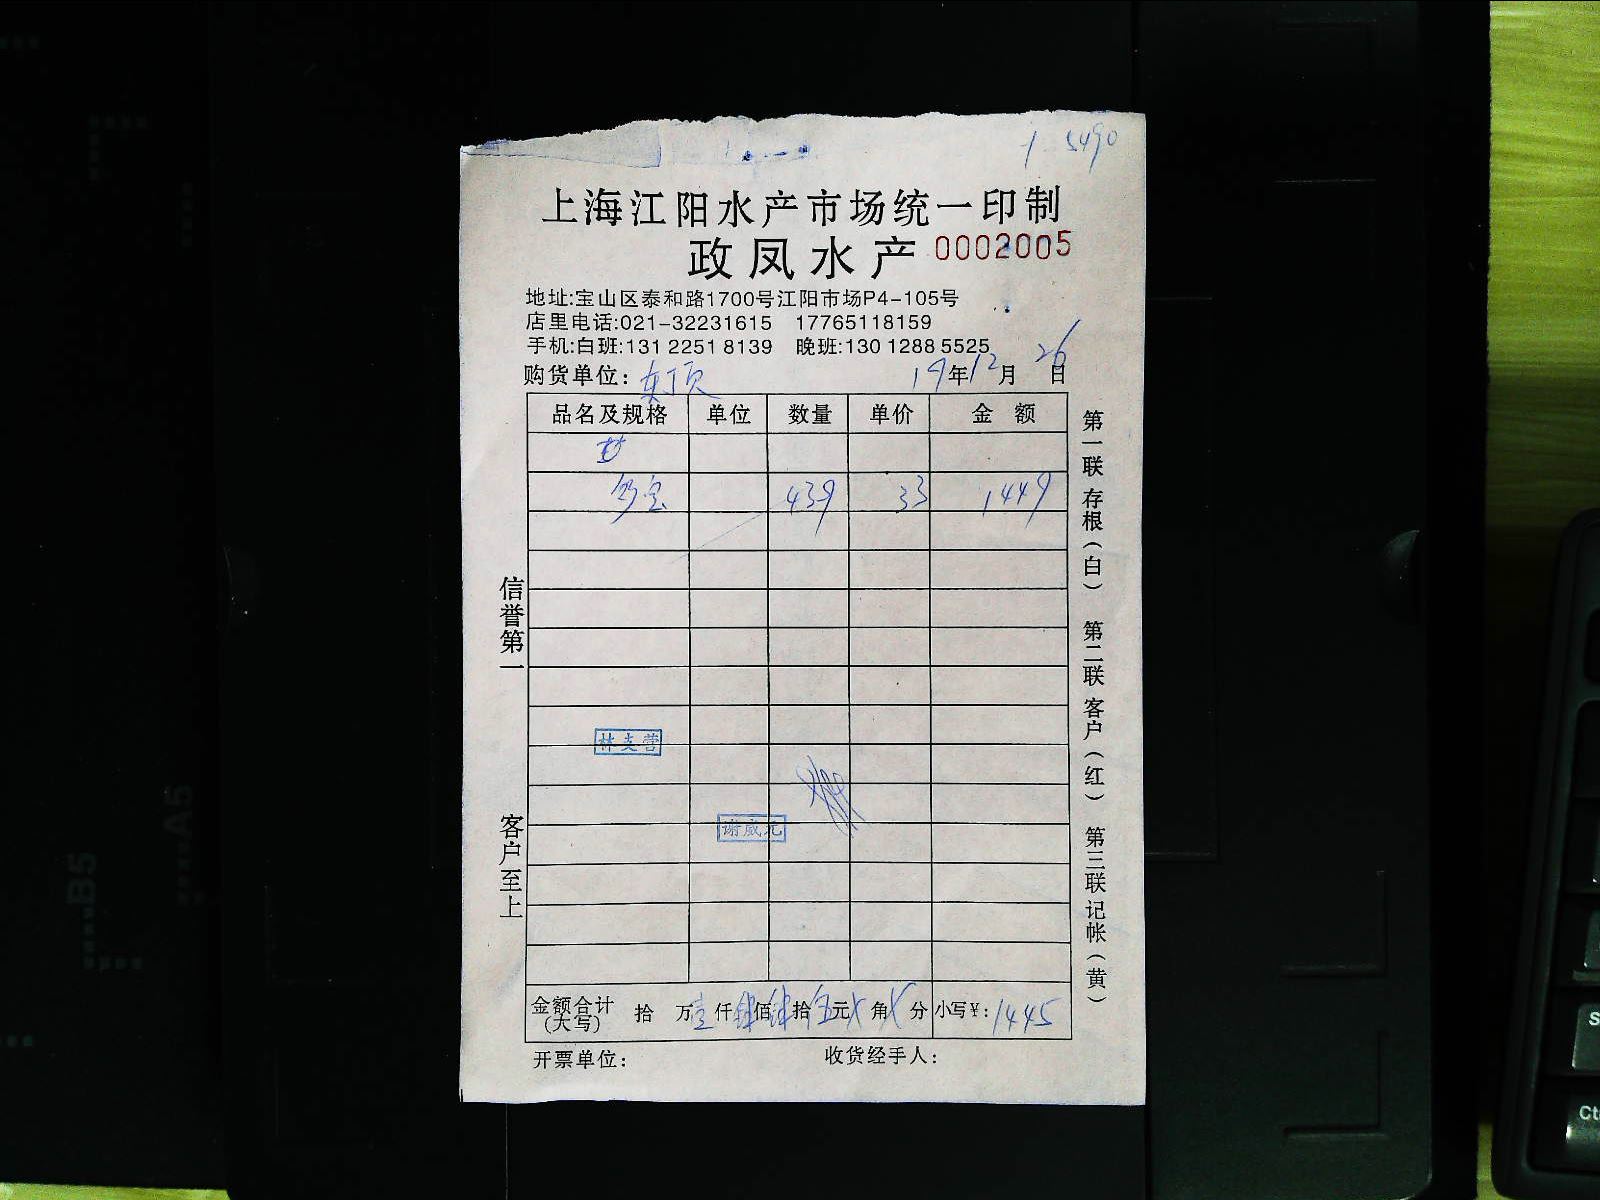 5490
上海江阳水产市场统一印制
政凤水产 0002005
地址:宝山区泰和路1700号江阳市场P4-105号
店里电话:021-32231615 17765118159
手机:白班:131 2251 8139 晚班:130 1288 5525
购货单位: 东顶 19年12月26日
品名及规格 单位 数量 单价 金额
439 33 1449
信誉第一
客户至上
林支营
谢成元
第一联 存根(白) 第二联 客户(红) 第三联 记帐(黄)
金额合计(大写) 拾 万壹仟肆佰肆拾伍元 角 分 小写¥: 1445
开票单位: 收货经手人:
B5
A5